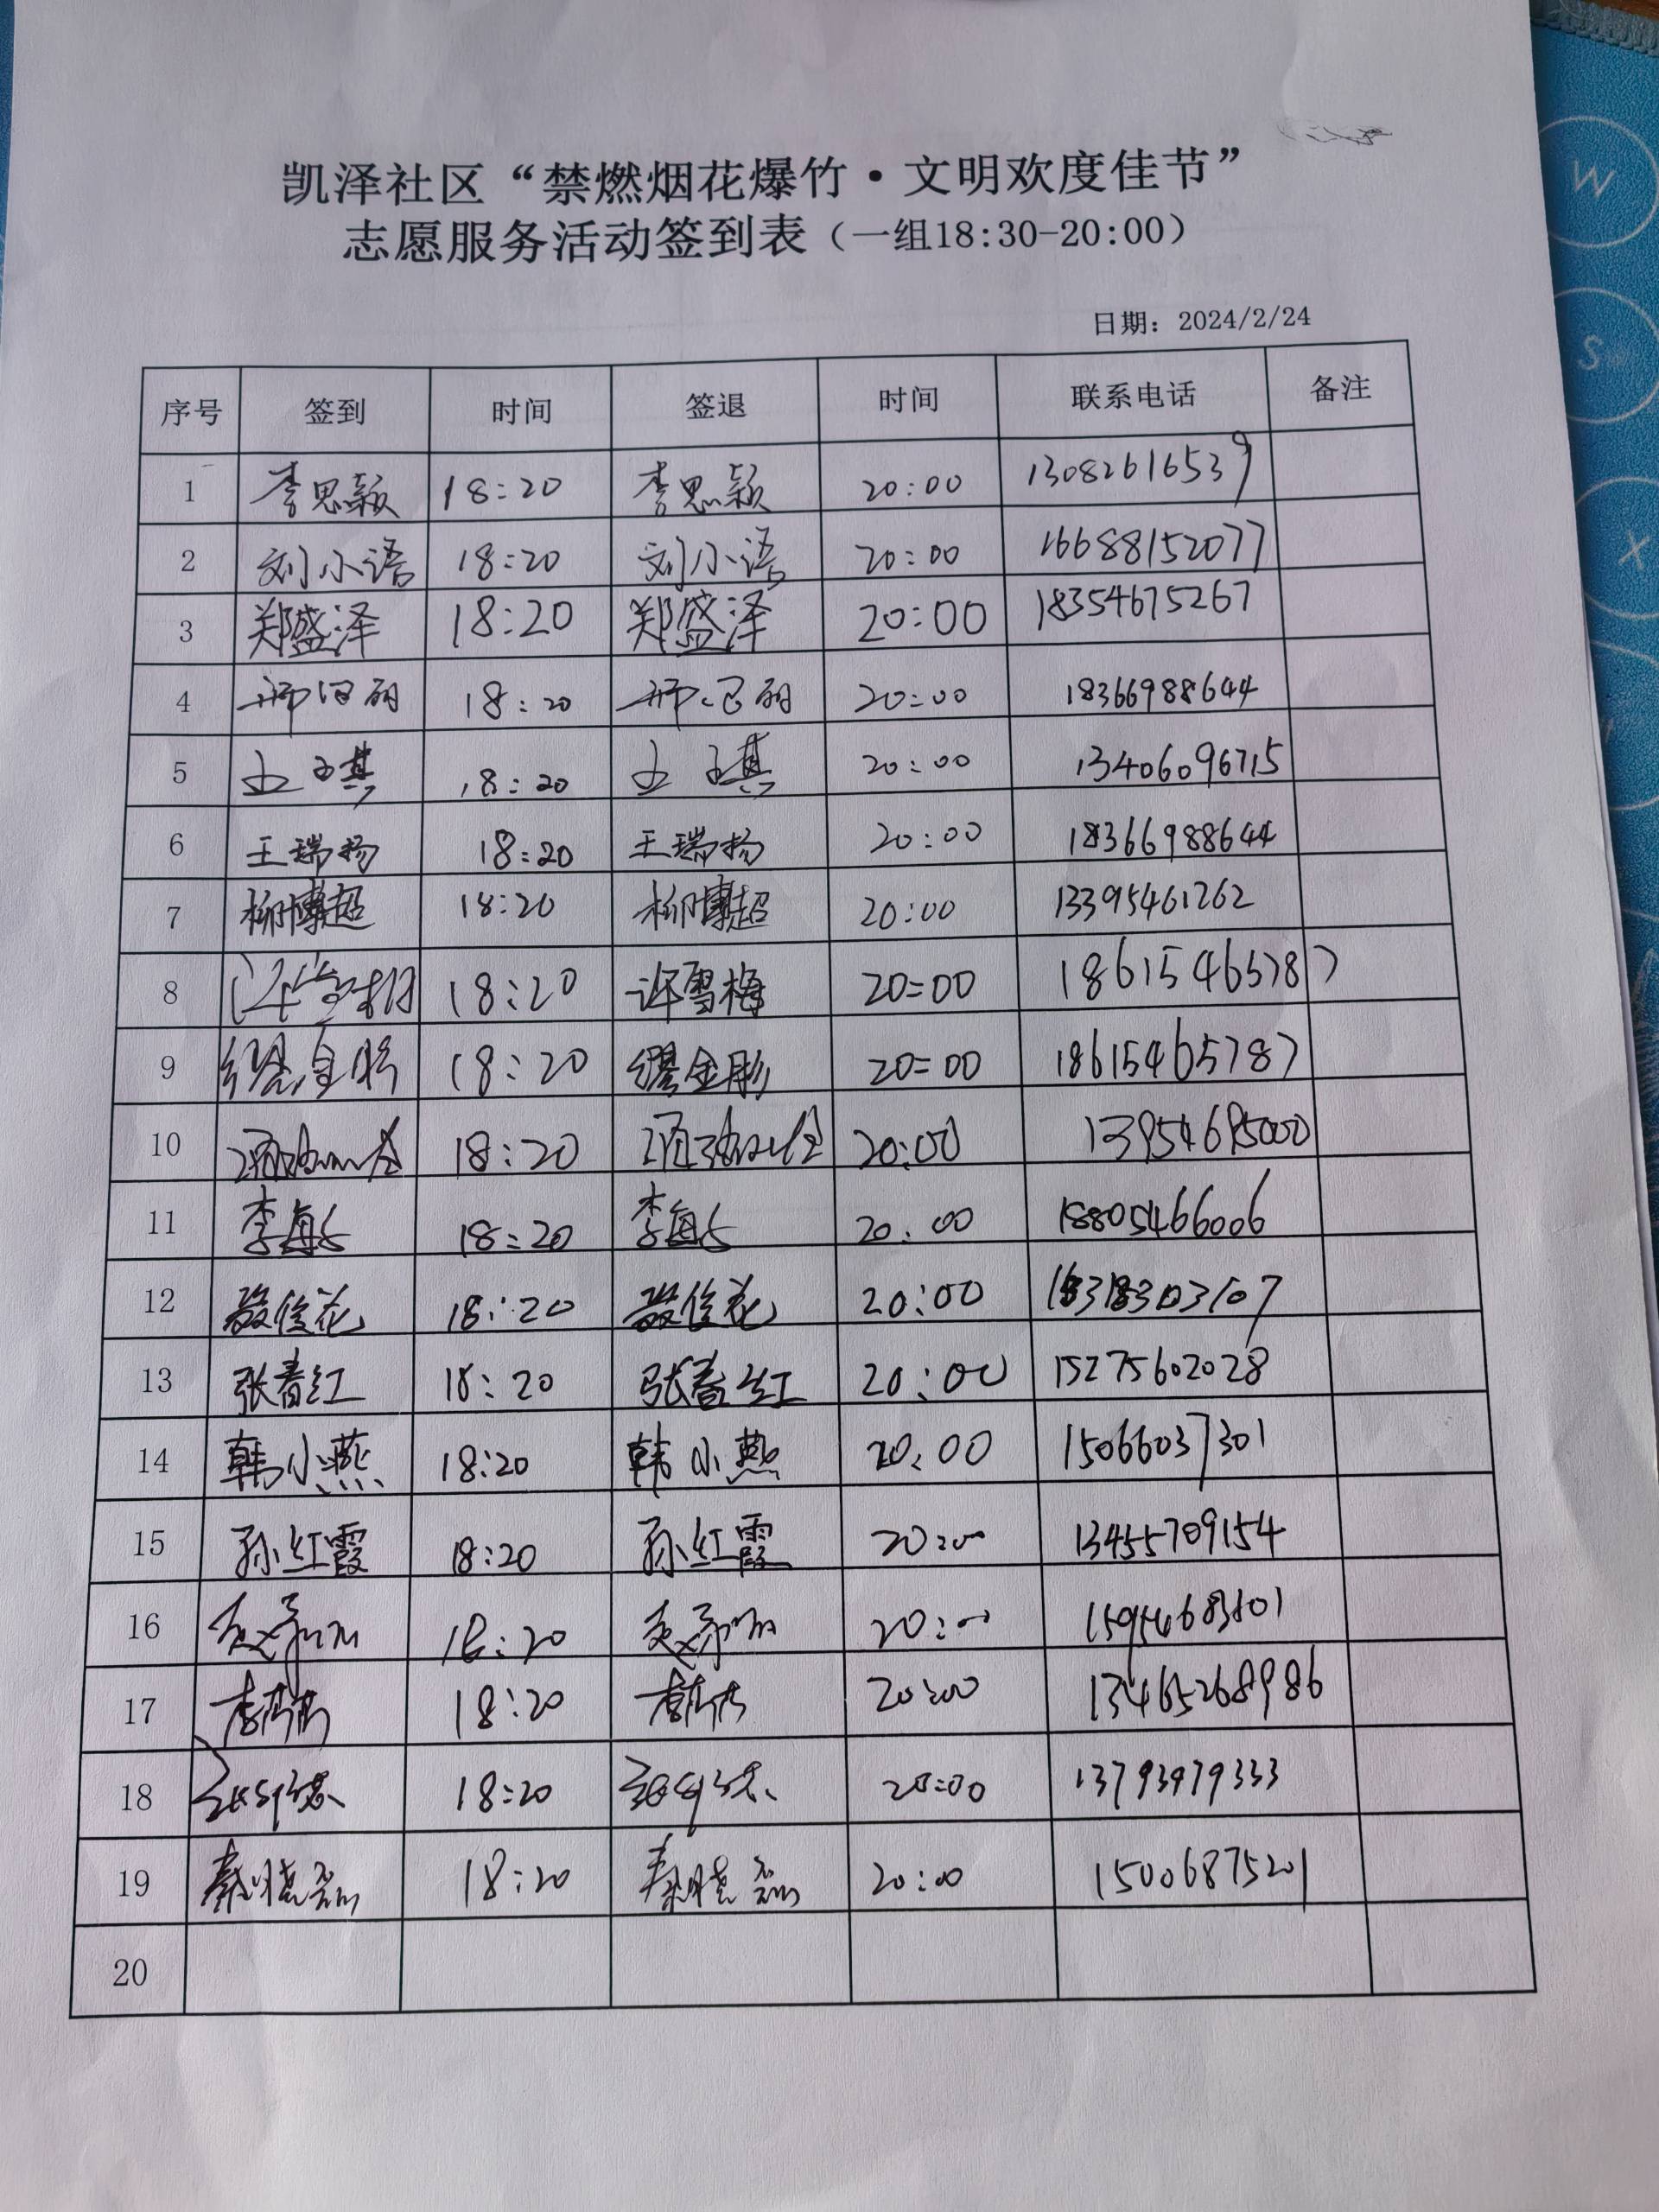 凯泽社区“禁燃烟花爆竹·文明欢度佳节”
志愿服务活动签到表（一组18:30-20:00）
日期：2024/2/24
序号 签到 时间 签退 时间 联系电话 备注
1 李思颖 18:20 李思颖 20:00 13082616539
2 刘小语 18:20 刘小语 20:00 16688152077
3 郑盛泽 18:20 郑盛泽 20:00 18354675267
4 18:20 20:00 18366988644
5 18:20 20:00 13406096715
6 王瑞扬 18:20 王瑞扬 20:00 18366988644
7 柳博超 18:20 柳博超 20:00 13395461262
8 许雪梅 18:20 许雪梅 20:00 18615465787
9 缪金彤 18:20 缪金彤 20:00 18615465787
10 18:20 20:00 13954695000
11 18:20 20:00 18805466006
12 18:20 20:00
13 张春红 18:20 张春红 20:00 15275602028
14 韩小燕 18:20 韩小燕 20:00 15066037301
15 孙红霞 18:20 孙红霞 20:00 13455709154
16 18:20 20:00
17 18:20 20:00 13465268986
18 18:20 20:00 13793979333
19 秦晓磊 18:20 秦晓磊 20:00 15006875201
20
W
S
X